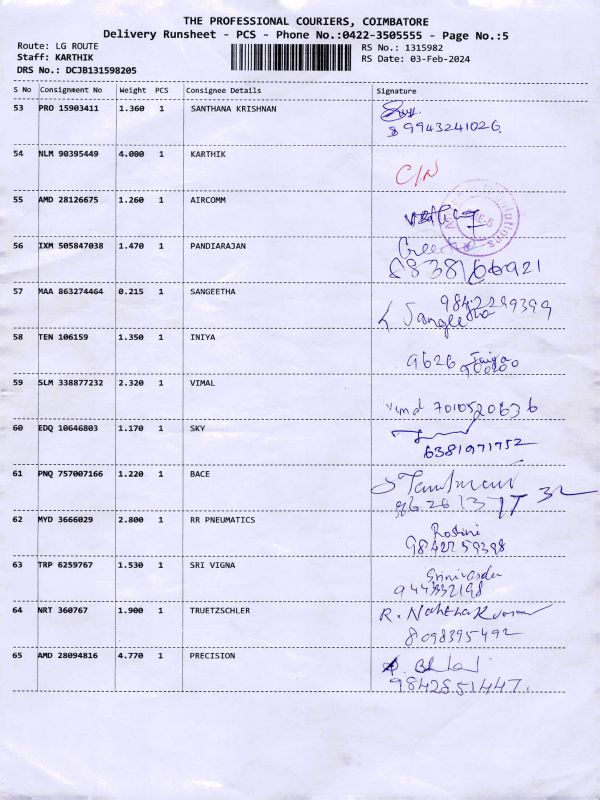 THE PROFESSIONAL COURIERS, COIMBATORE
Delivery Runsheet - PCS - Phone No.:0422-3505555 - Page No.:5
Route: LG ROUTE RS No.: 1315982
Staff: KARTHIK RS Date: 03-Feb-2024
DRS No.: DCJB131598205
S No Consignment No Weight PCS Consignee Details Signature
53 PRO 15903411 1.360 1 SANTHANA KRISHNAN
9943241026
54 NLM 90395449 4.000 1 KARTHIK
C/N
55 AMD 28126675 1.260 1 AIRCOMM
56 IXM 505847038 1.470 1 PANDIARAJAN
57 MAA 863274464 0.215 1 SANGEETHA
9842299399
Sangeetha
58 TEN 106159 1.350 1 INIYA
9626
59 SLM 338877232 2.320 1 VIMAL
7010520636
60 EDQ 10646803 1.170 1 SKY
6381971752
61 PNQ 757007166 1.220 1 BACE
62 MYD 3666029 2.800 1 RR PNEUMATICS
Rosini
9842259398
63 TRP 6259767 1.530 1 SRI VIGNA
64 NRT 360767 1.900 1 TRUETZSCHLER
8098395492
65 AMD 28094816 4.770 1 PRECISION
9842851447.